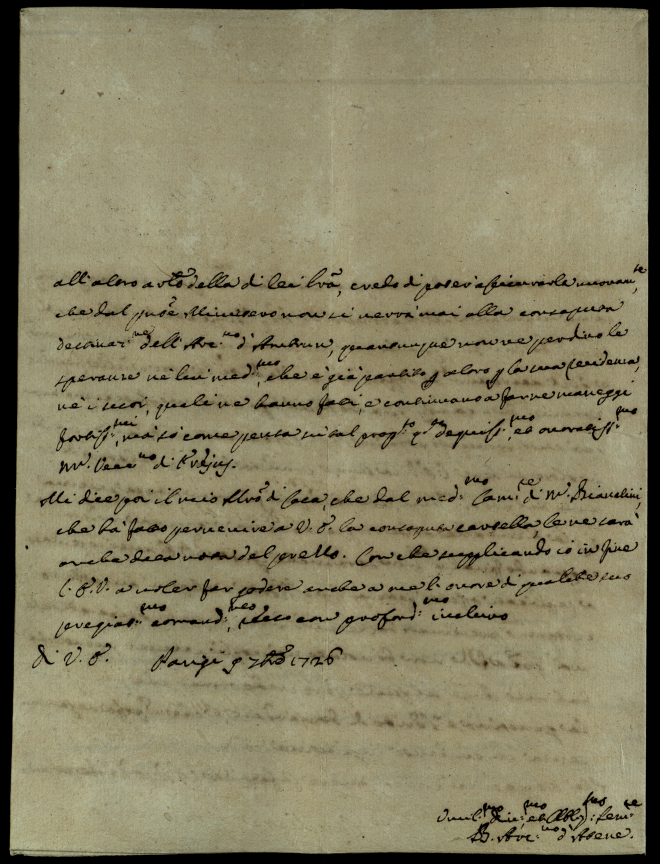 all'altro art.º della di lei lrã, credo di poter assicurarla nuovam.te,
che dal pnte Ministero non si verrà mai alla consaputa
destinaz.ne dell'Arc.vo d'Ambrun, quantunque non ne perdino le
speranze nè lui med.mo, che è già partito p la sua residenza,
nè i suoi, quali ne hanno fatti, e continuano a farne maneggi
fortiss.mi, mà sò come pensa in tal prop.to q.to degniss.mo, et onoratiss.mo
Mr. Vesc.vo di Frejus.
Mi dice poi il mio Mrõ di Casa, che dal med.mo Cam.re di Mr. Biancolini,
che hà fatto pervenire a V. E. la consaputa cassella, le ne sarà
anche data nota del prezzo. Con che supplicando io in fine
l'E. V. a voler far godere anche a me l'onore di qualche suo
pregiat.mo comand.to, resto con profond.mo inchino
di V. E. Parigi 9 7bre 1726
Umil.mo Div.mo et Obblig.mo Serv.re
B. Arc.vo d'Atene.